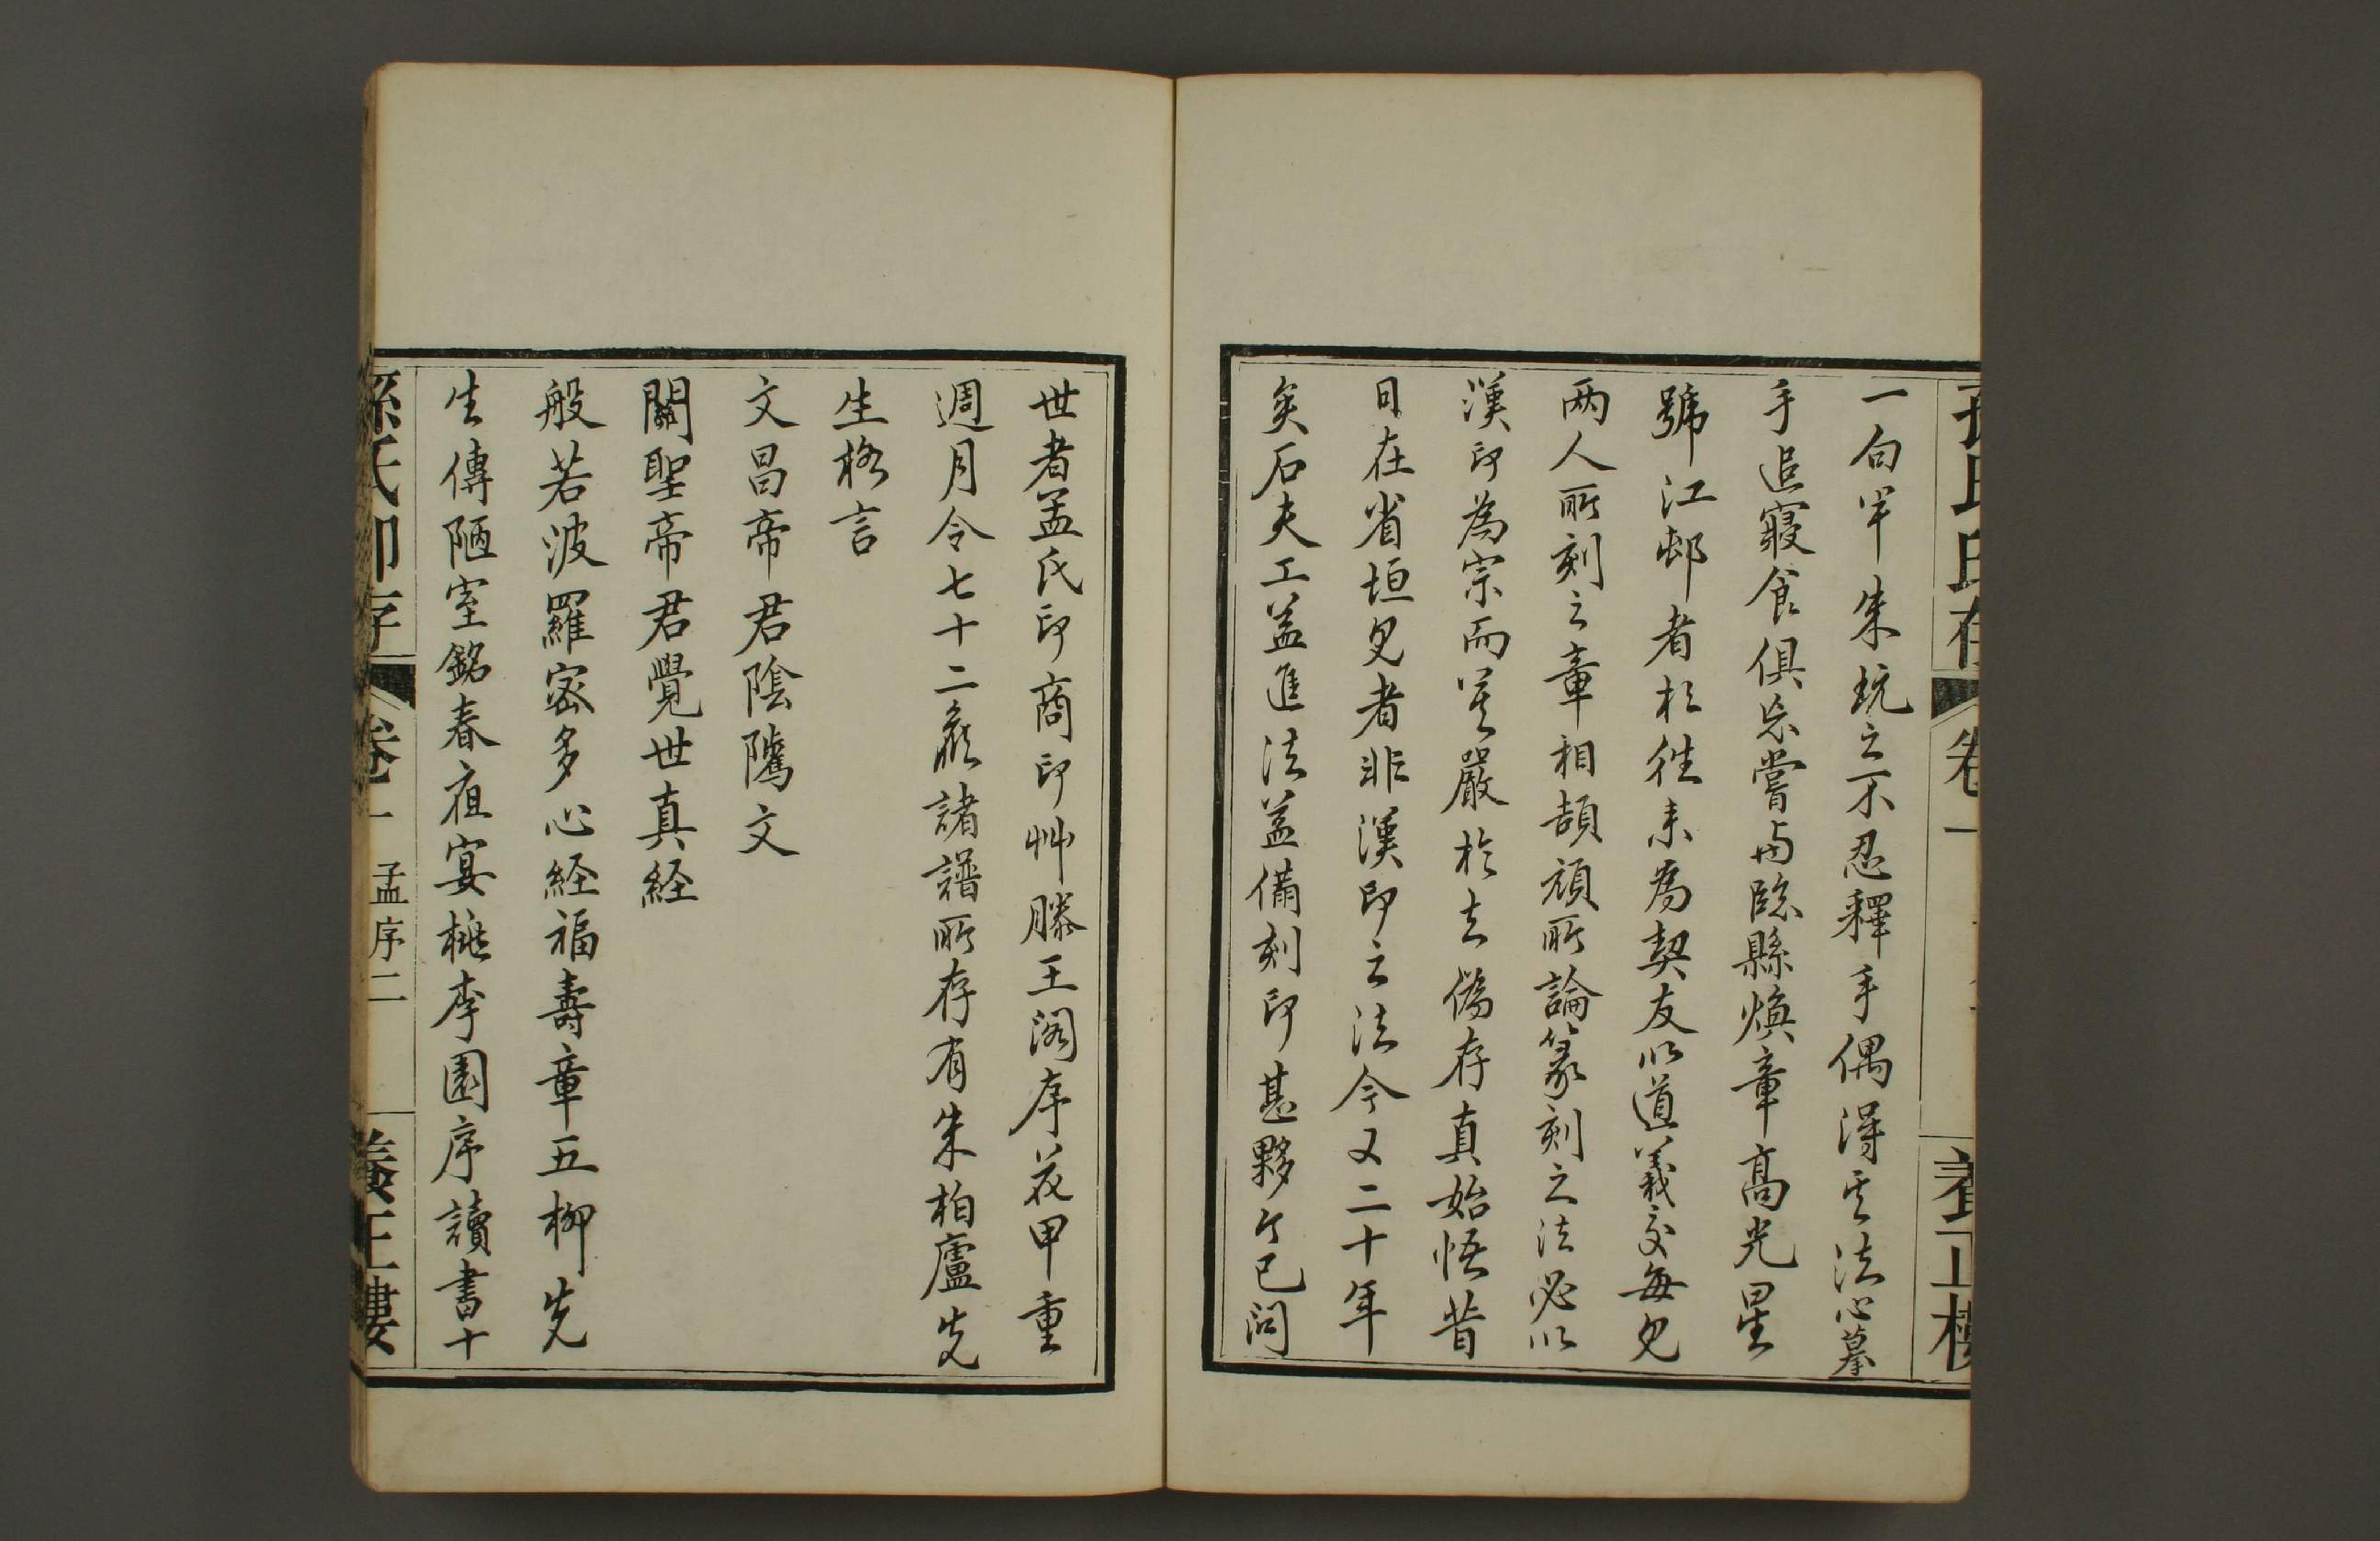 一句半朱玩之不忍釋手偶得其法心摹
手追寢食俱忘嘗与臨縣煥章高光星
號江邨者於徃来為契友以道義交每見
两人所刻之章相頡頏所論篆刻之法必以
漢印為宗而其嚴於去偽存真始悟昔
日在省垣見者非漢印之法今又二十年
矣石夫工益進法益備刻印甚夥今已問
世者孟氏印商印艸滕王阁序花甲重
週月令七十二候諸譜所存有朱柏廬先
生格言
文昌帝君陰隲文
關聖帝君覺世真経
般若波羅密多心経福壽章五柳先
生傳陋室銘春夜宴桃李園序讀書十
孫氏印存 卷一 孟序二 養正樓